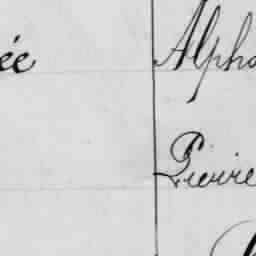 ée Alpho
Pierre